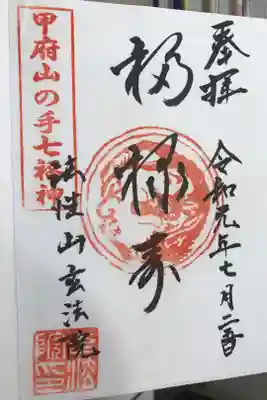 奉拝
令和元年七月
福禄寿
法性山玄法院
甲府山の手七福神